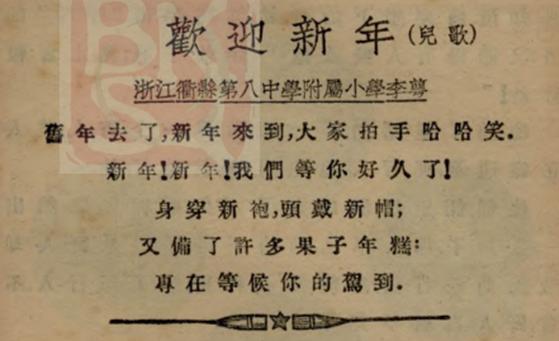 歡迎新年(兒歌)
浙江衢縣第八中學附屬小學李蕚
舊年去了,新年來到,大家拍手哈哈笑.
新年!新年!我們等你好久了!
身穿新袍,頭戴新帽;
又備了許多果子年糕:
專在等候你的駕到.